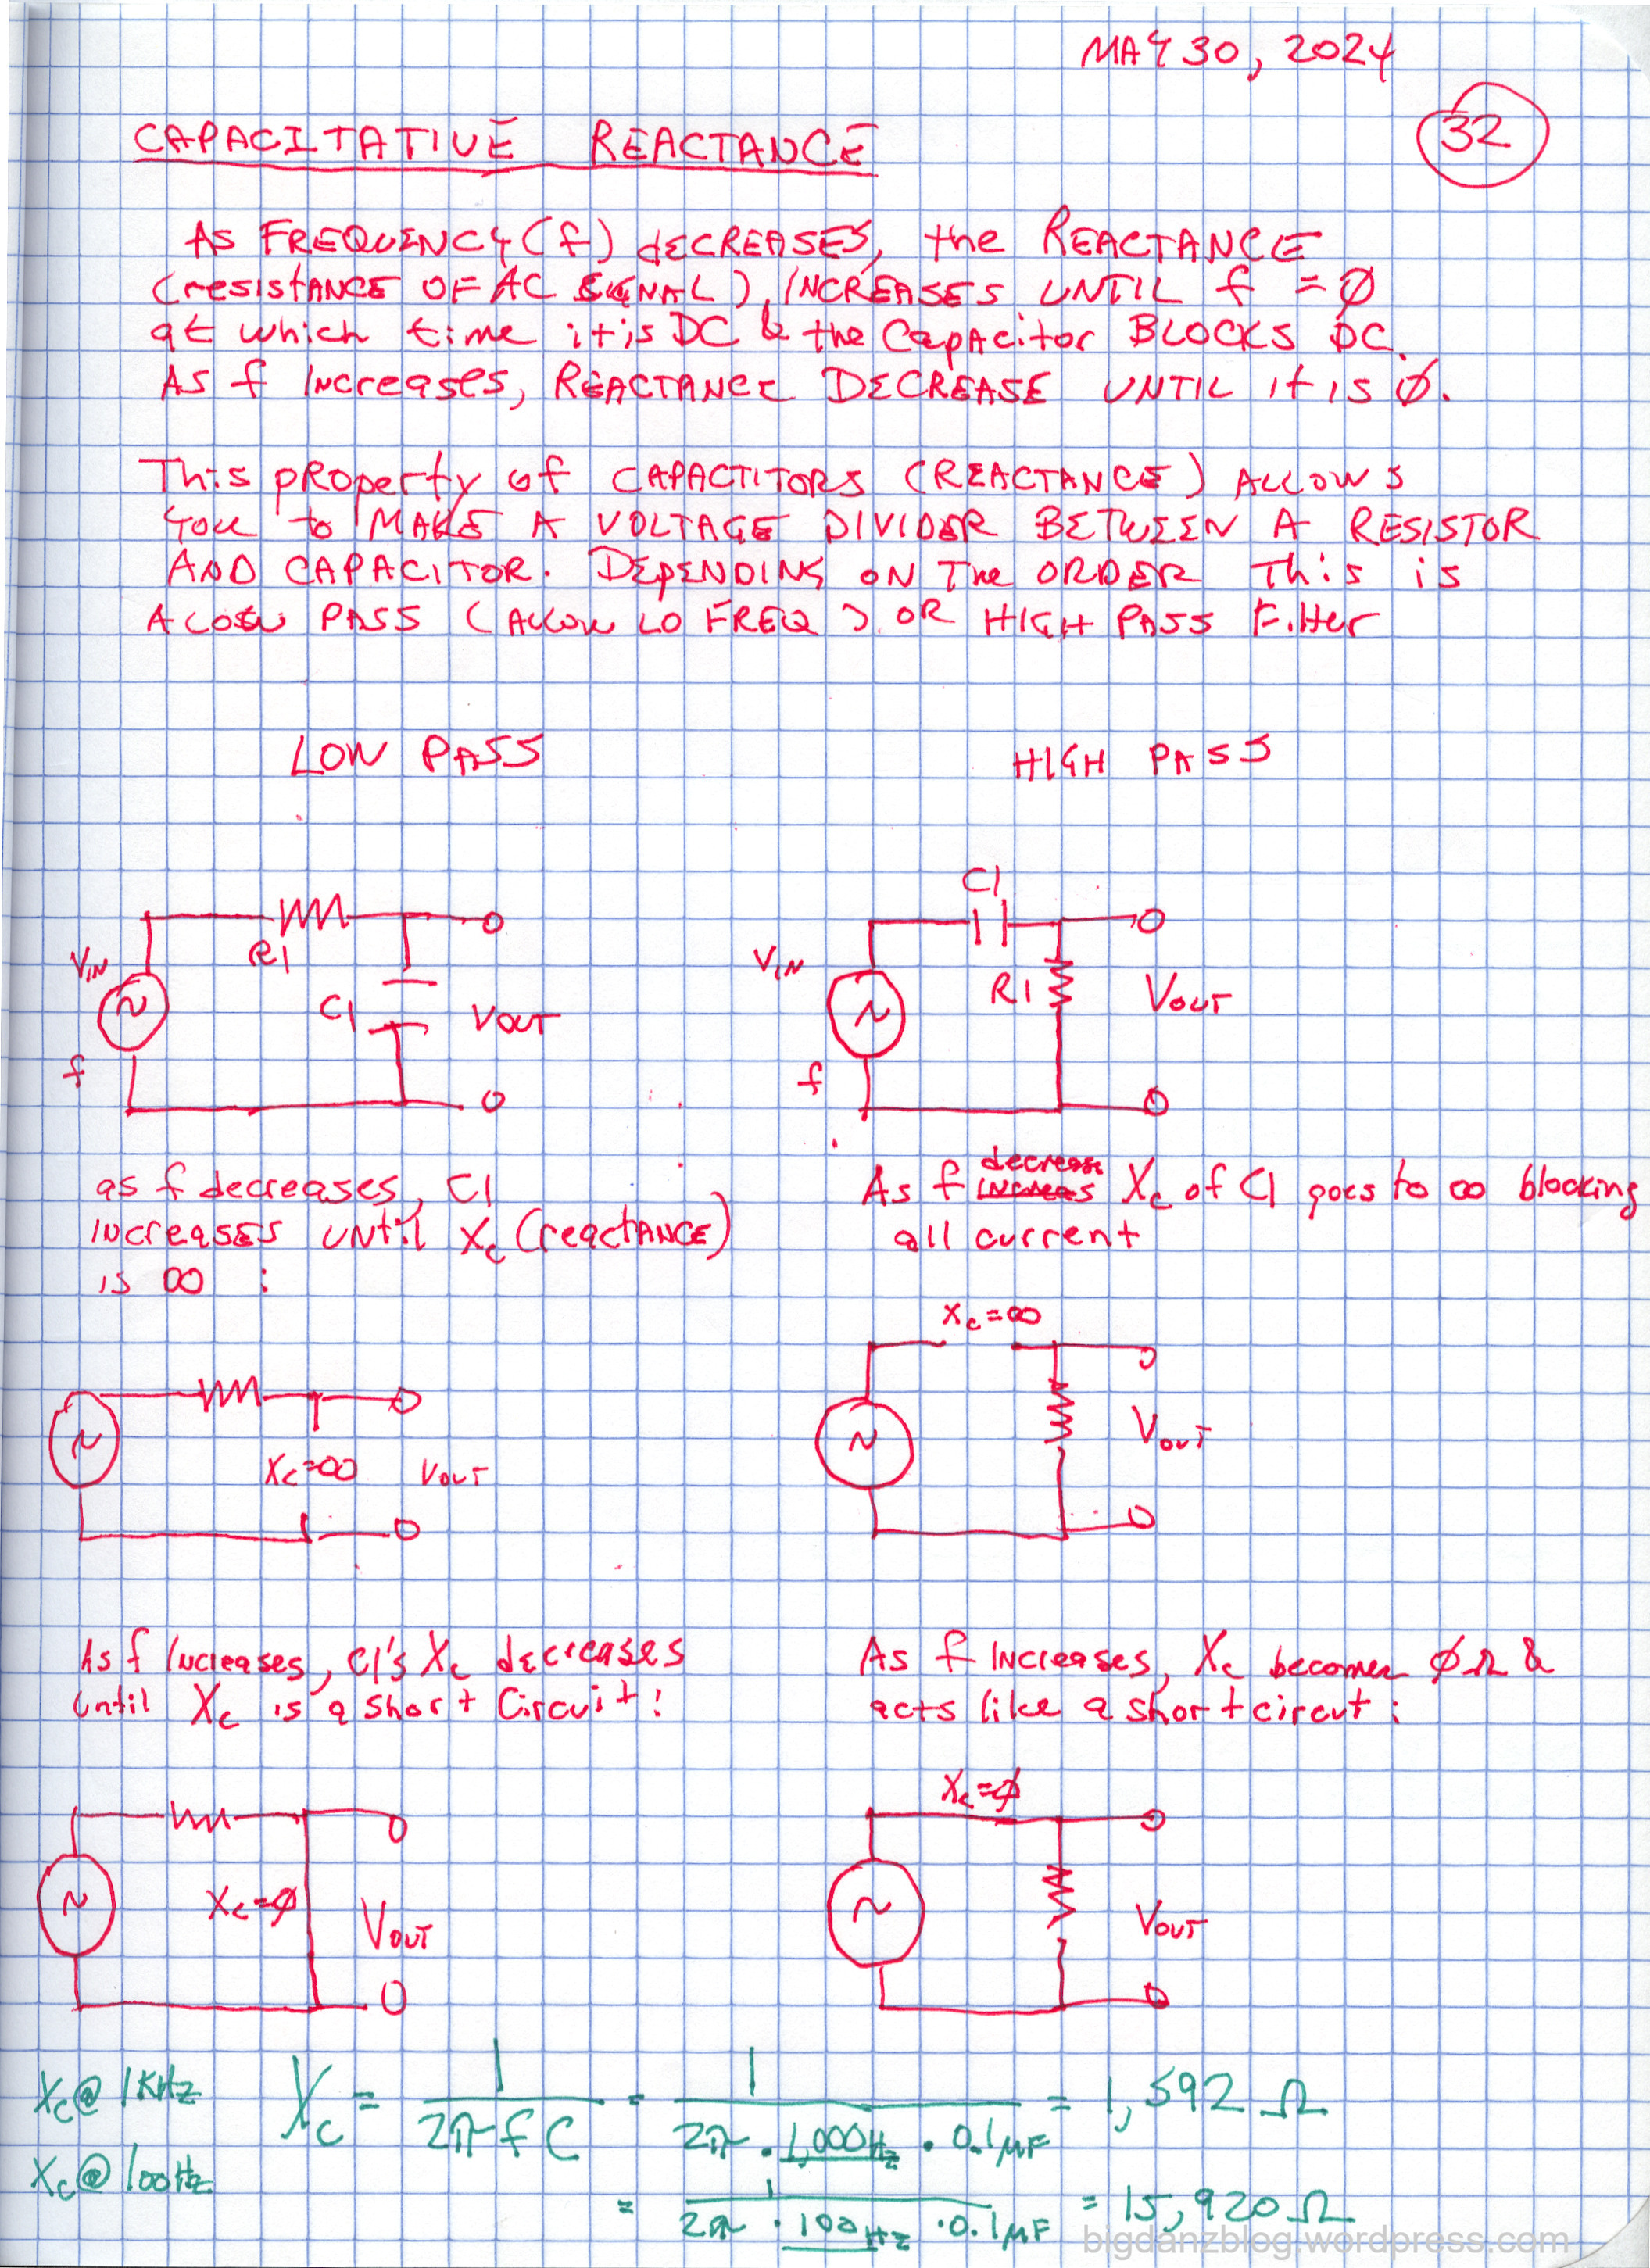 MAY 30, 2024
32
CAPACITATIVE REACTANCE
AS FREQUENCY (f) DECREASES, the REACTANCE
(resistANCE OF AC SIGNAL), INCREASES UNTIL f = Ø
at which time it is DC & the CapAcitor BLOCKS DC.
As f Increases, REACTANCE DECREASE UNTIL it is Ø.
This pROperty of CAPACTITORS (REACTANCE) ALLOWS
you to MAKE A VOLTAGE DIVIDER BETWEEN A RESISTOR
AND CAPACITOR. DEPENDING ON The ORDER This is
A LOW PASS (ALLOW LO FREQ) OR HIGH PASS Filter
LOW PASS
HIGH PASS
C1
VIN
R1
C1
VOUT
f
VIN
R1
VOUT
f
as f decreases, C1
INCreASES UNtil Xc (reactANCE)
is ∞ :
As f decrease increas Xc of C1 goes to ∞ blocking
all current
Xc=∞
Xc=∞
VOUT
VOUT
As f Increases, C1's Xc decreases
until Xc is a short Circuit:
As f Increases, Xc becomes ØΩ &
acts like a short circut:
Xc=Ø
Xc=Ø
VOUT
VOUT
Xc@ 1KHz
Xc = 1/2πfC = 1/2π · 1,000Hz · 0.1μF = 1,592 Ω
Xc@ 100Hz
= 1/2π · 100Hz · 0.1μF = 15,920 Ω
bigdanzblog.wordpress.com